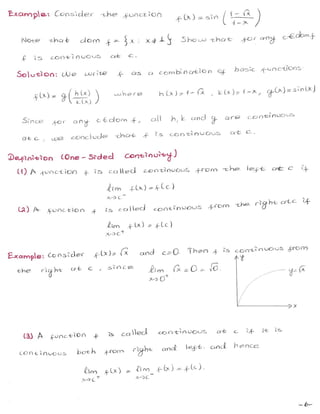 Example: Consider the function f(x) = sin ( (1-√x) / (1-x) )
Note that dom f = { x : x ≠ 1 } Show that for any c∈domf
f is continuous at c.
Solution: We write f as a combination of basic functions.
f(x) = g( h(x) / k(x) ) where h(x) = 1-√x , k(x) = 1-x, g(x) = sin(x)
Since for any c∈domf, all h, k and g are continuous
at c, we conclude that f is continuous at c.
Definition (One-Sided Continuity)
(1) A function f is called continuous from the left at c if
lim f(x) = f(c)
x→c⁻
(2) A function f is called continuous from the right at c if
lim f(x) = f(c)
x→c⁺
Example: Consider f(x) = √x and c=0. Then f is continuous from
the right at c, since lim √x = 0 = √0.
x→0⁺
y
y=√x
x
(3) A function f is called continuous at c if it is
continuous both from right and left. and hence
lim f(x) = lim f(x) = f(c).
x→c⁺ x→c⁻
-6-